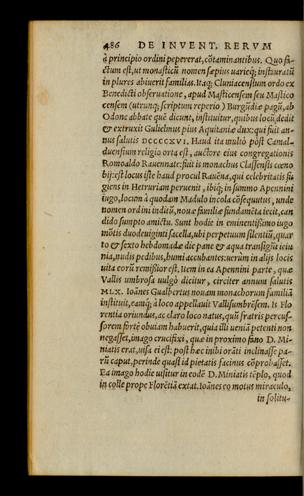 486 DE INVENT. RERVM
à principio ordini pepererat, cōtaminantibus. Quo fa-
ctum est, ut monasticū nomen sæpius uarieq; instauratū
in plures abiuerit familias. Itaq; Cluniacensium ordo ex
Benedicti obseruatione, apud Masticensem seu Mastico
censem (utrunq; scriptum reperio) Burgūdiæ pagū, ab
Odone abbate quē dicunt, instituitur, quibus locū dedit
& extruxit Gulielmus pius Aquitaniæ dux: qui fuit an-
nus salutis DCCCCXVI. Haud ita multò pòst Camal-
duensium religio orta est, auctore eius congregationis
Romoaldo Rauennate: fuit is monachus Classensis cœno
bij: est locus iste haud procul Rauēna, qui celebritatis fu
giens in Hetruriam peruenit, ibiq; in summo Apennini
iugo, locum à quodam Madulo incola cōsequutus, unde
nomen ordini indiū, nouæ familiæ fundamēta iecit, can
dido sumpto amictu. Sunt hodie in eminentissimo iugo
mōtis duodeuiginti sacella, ubi perpetuum silentiū, quar
to & sexto hebdomadæ die pane & aqua transigūt ieiu
nia, nudis pedibus, humi accubantes: uerùm in alijs locis
uita eorū remissior est. Item in ea Apennini parte, quæ
Vallis umbrosa uulgò dicitur, circiter annum salutis
MLX. Ioānes Gualbertus nouam monachorum familiā
instituit, eamq; à loco appellauit Vallisumbrēsem. Is Flo
rentia oriundus, ac claro loco natus, quū fratris percus-
sorem fortè obuiam habuerit, quia illi ueniā petenti non
negasset, imago crucifixi, quæ in proximo fano D. Mi-
niatis erat, uisa ei est: post hæc inibi oràti inclinasse pa-
rū caput, perinde quasi id pietatis facinus cōprobasset.
Ea imago hodie uisitur in eodē D. Miniatis tēplo, quod
in colle prope Florētiā extat. Ioānes eo motus miraculo,
in solitu-